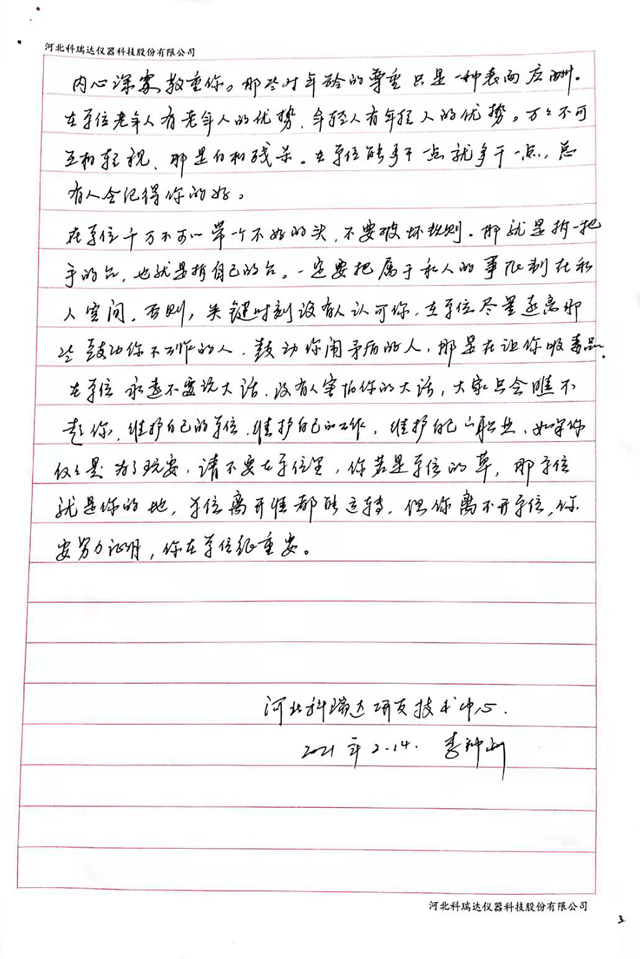 河北科瑞达仪器科技股份有限公司
内心深处敬重你。那些对年龄的尊重只是一种表面应酬。
在单位老年人有老年人的优势,年轻人有年轻人的优势。万万不可
互相轻视,那是自相残杀。在单位能多干一点就多干一点,总
有人会记得你的好。
在单位千万不可以带一个不好的头,不要破坏规则。那就是拆一把
手的台,也就是拆自己的台。一定要把属于私人的事限制在私
人空间,否则,关键时刻没有人认可你,在单位尽量远离那
些鼓动你不工作的人,鼓动你闹矛盾的人,那是在让你吸毒品
在单位永远不要说大话,没有人害怕你的大话,大家只会瞧不
起你,维护自己的单位,维护自己的工作,维护自己的职业,如果你
仅仅是为了玩耍,请不要在单位里,你若是单位的草,那单位
就是你的地,单位离开谁都能运转,但你离不开单位,你
要努力证明,你在单位很重要。
河北科瑞达研发技术中心.
2021年2.14.
河北科瑞达仪器科技股份有限公司
3